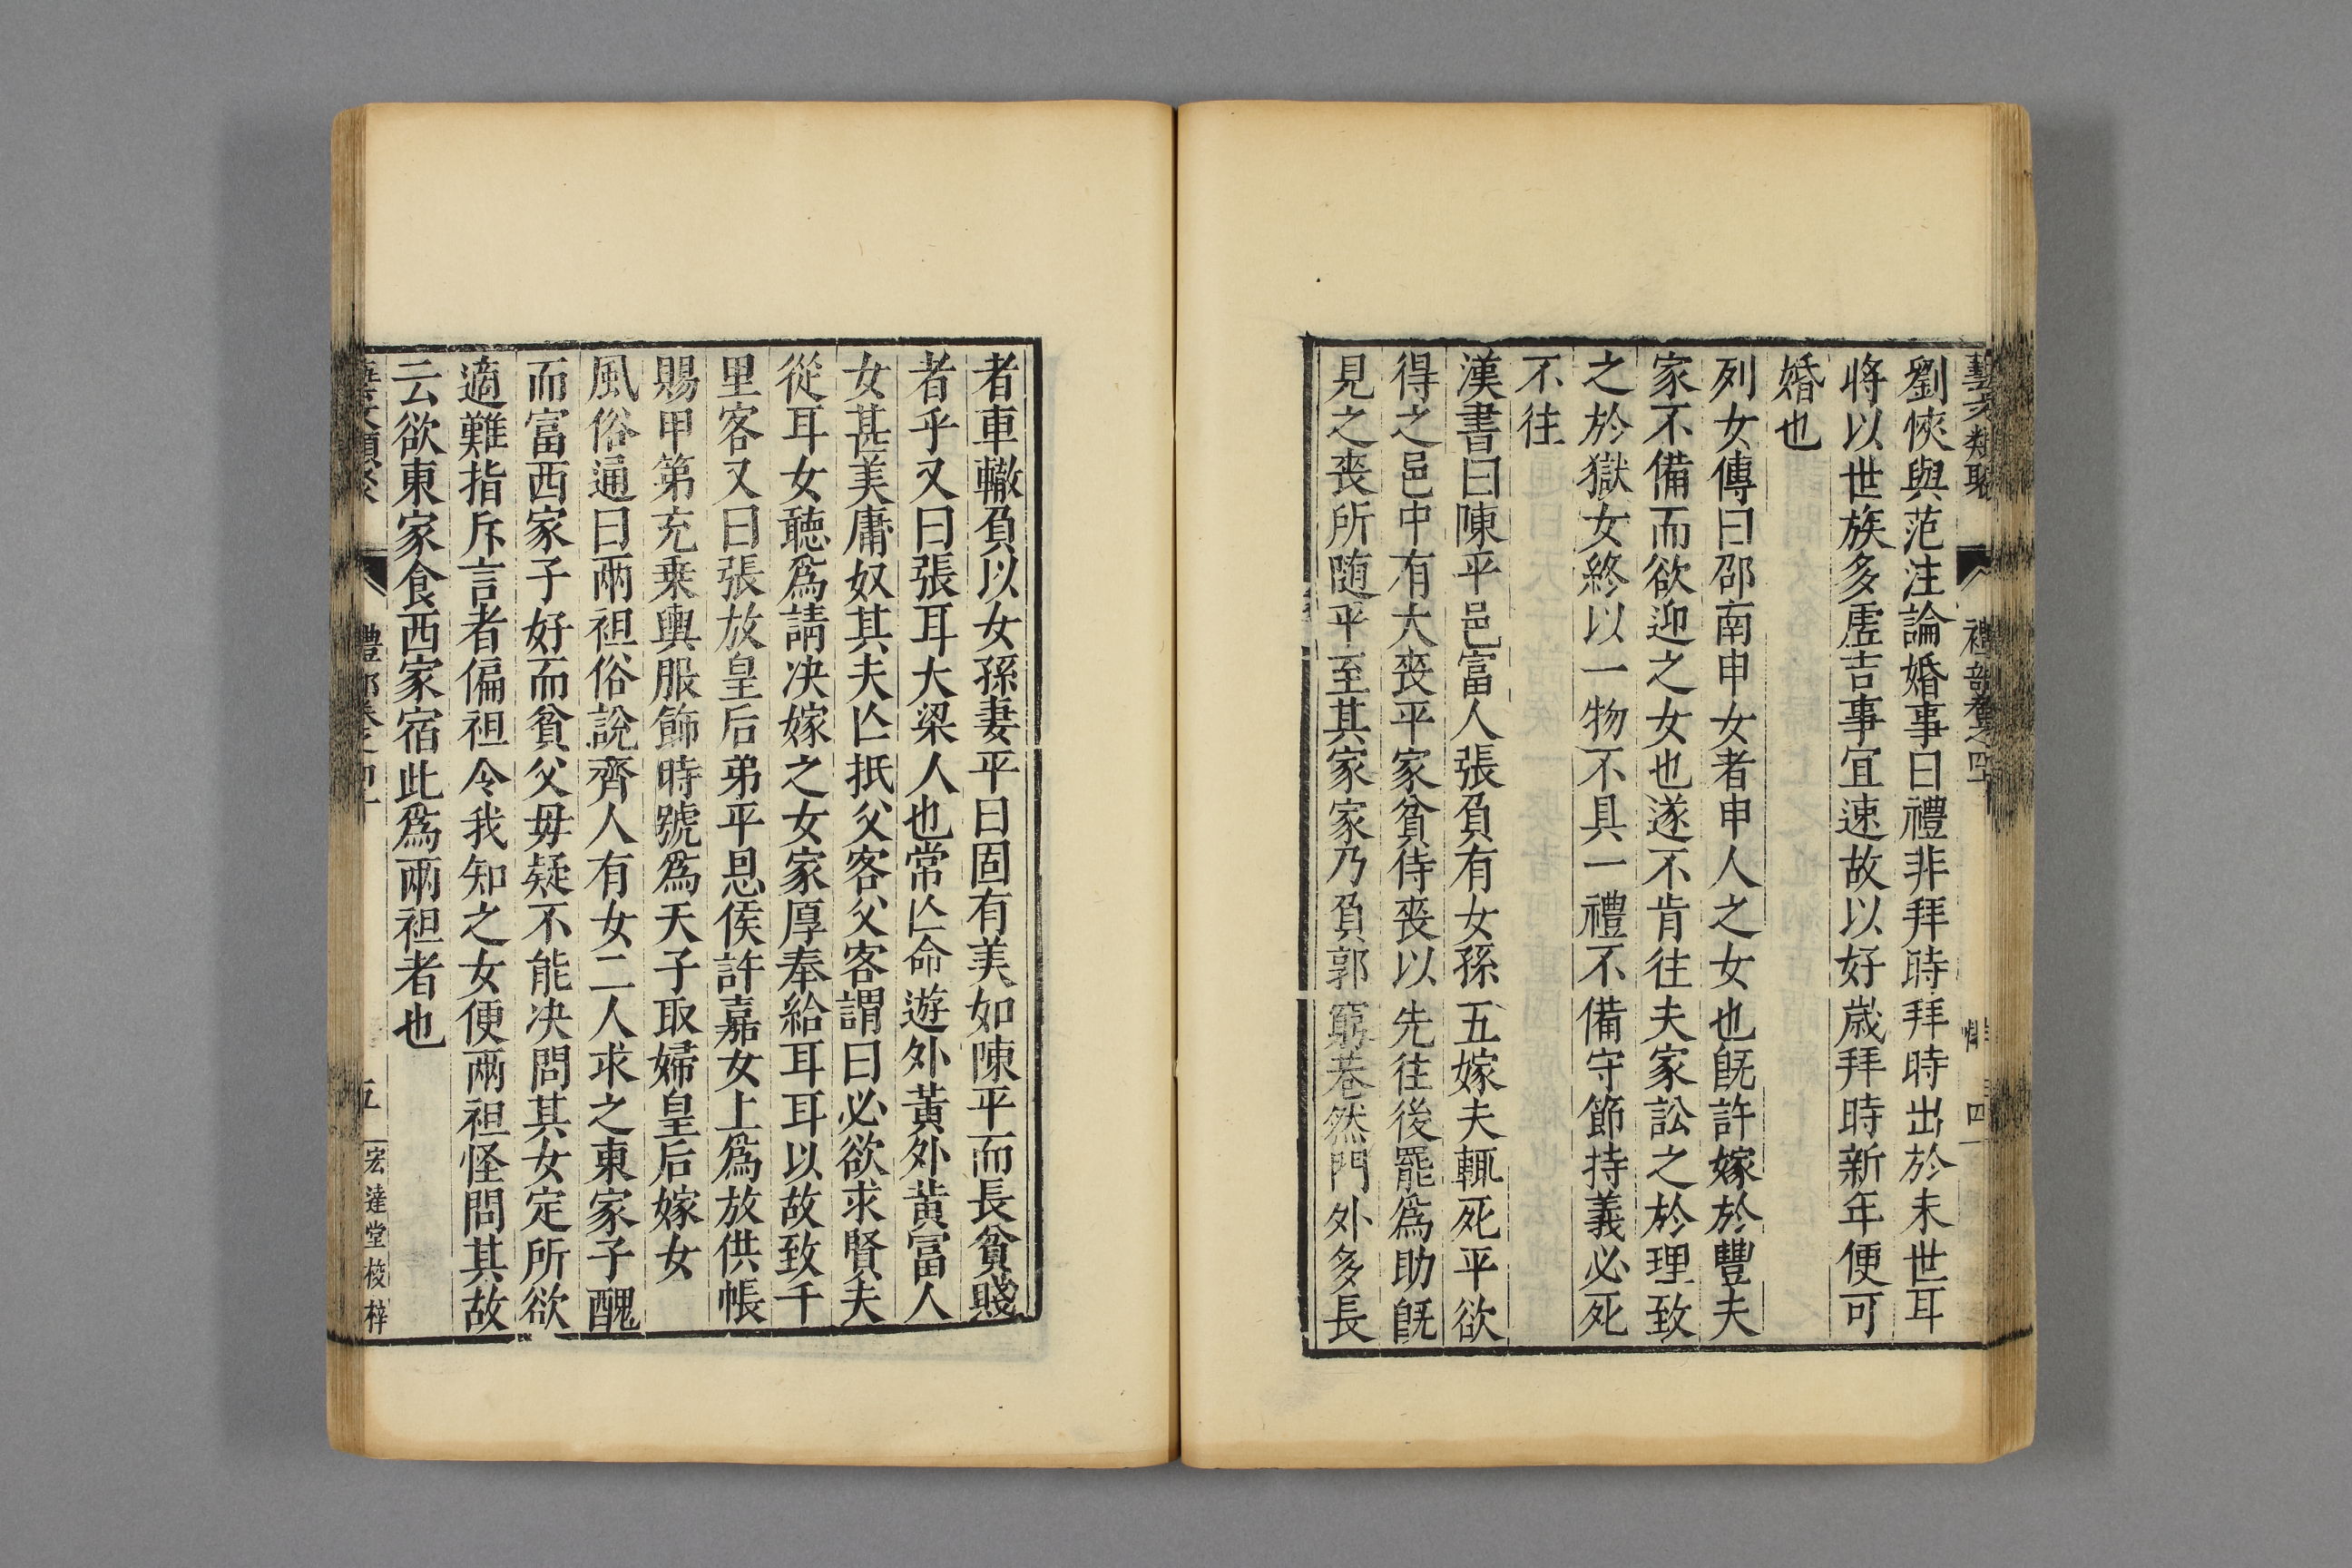 劉恢與范汪論婚事曰禮非拜時拜時出於末世耳
將以世族多虛吉事宜速故以好歲拜時新年便可
婚也
列女傳曰邵南申女者申人之女也旣許嫁於豐夫
家不備而欲迎之女也遂不肯往夫家訟之於理致
之於獄女終以一物不具一禮不備守節持義必死
不往
漢書曰陳平邑富人張負有女孫五嫁夫輒死平欲
得之邑中有大喪平家貧侍喪以先往後罷爲助旣
見之喪所随平至其家家乃負郭窮巷然門外多長
者車轍負以女孫妻平曰固有美如陳平而長貧賤
者乎又曰張耳大梁人也常亾命遊外黃外黃富人
女甚美庸奴其夫亾抵父客父客謂曰必欲求賢夫
從耳女聽爲請决嫁之女家厚奉給耳耳以故致千
里客又曰張放皇后弟平恩侯許嘉女上爲放供帳
賜甲第充乗輿服飾時號爲天子取婦皇后嫁女
風俗通曰兩袒俗說齊人有女二人求之東家子醜
而富西家子好而貧父毋疑不能决問其女定所欲
適難指斥言者偏袒令我知之女便兩袒怪問其故
云欲東家食西家宿此爲兩袒者也
五
宏達堂校梓